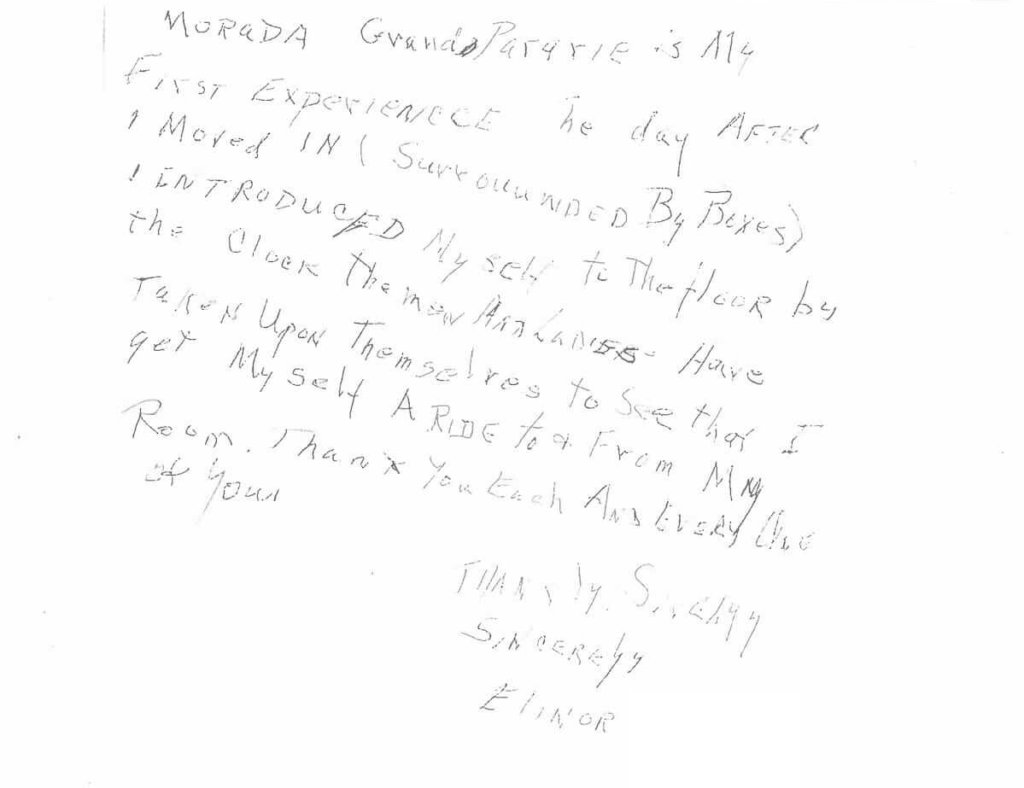 MORADA Grands Pararie is My
First Experienece The day AFTER
I Moved IN ( Surrouunded By Boxes)
I INTRODUCED My self to The floor by
the Clock The men And Ladies Have
Taken Upon Themselves to See that I
get My self A RIDE to & From My
Room. Thank You Each And Every One
of You
THANKly.
SINCERElyy
ElINOR